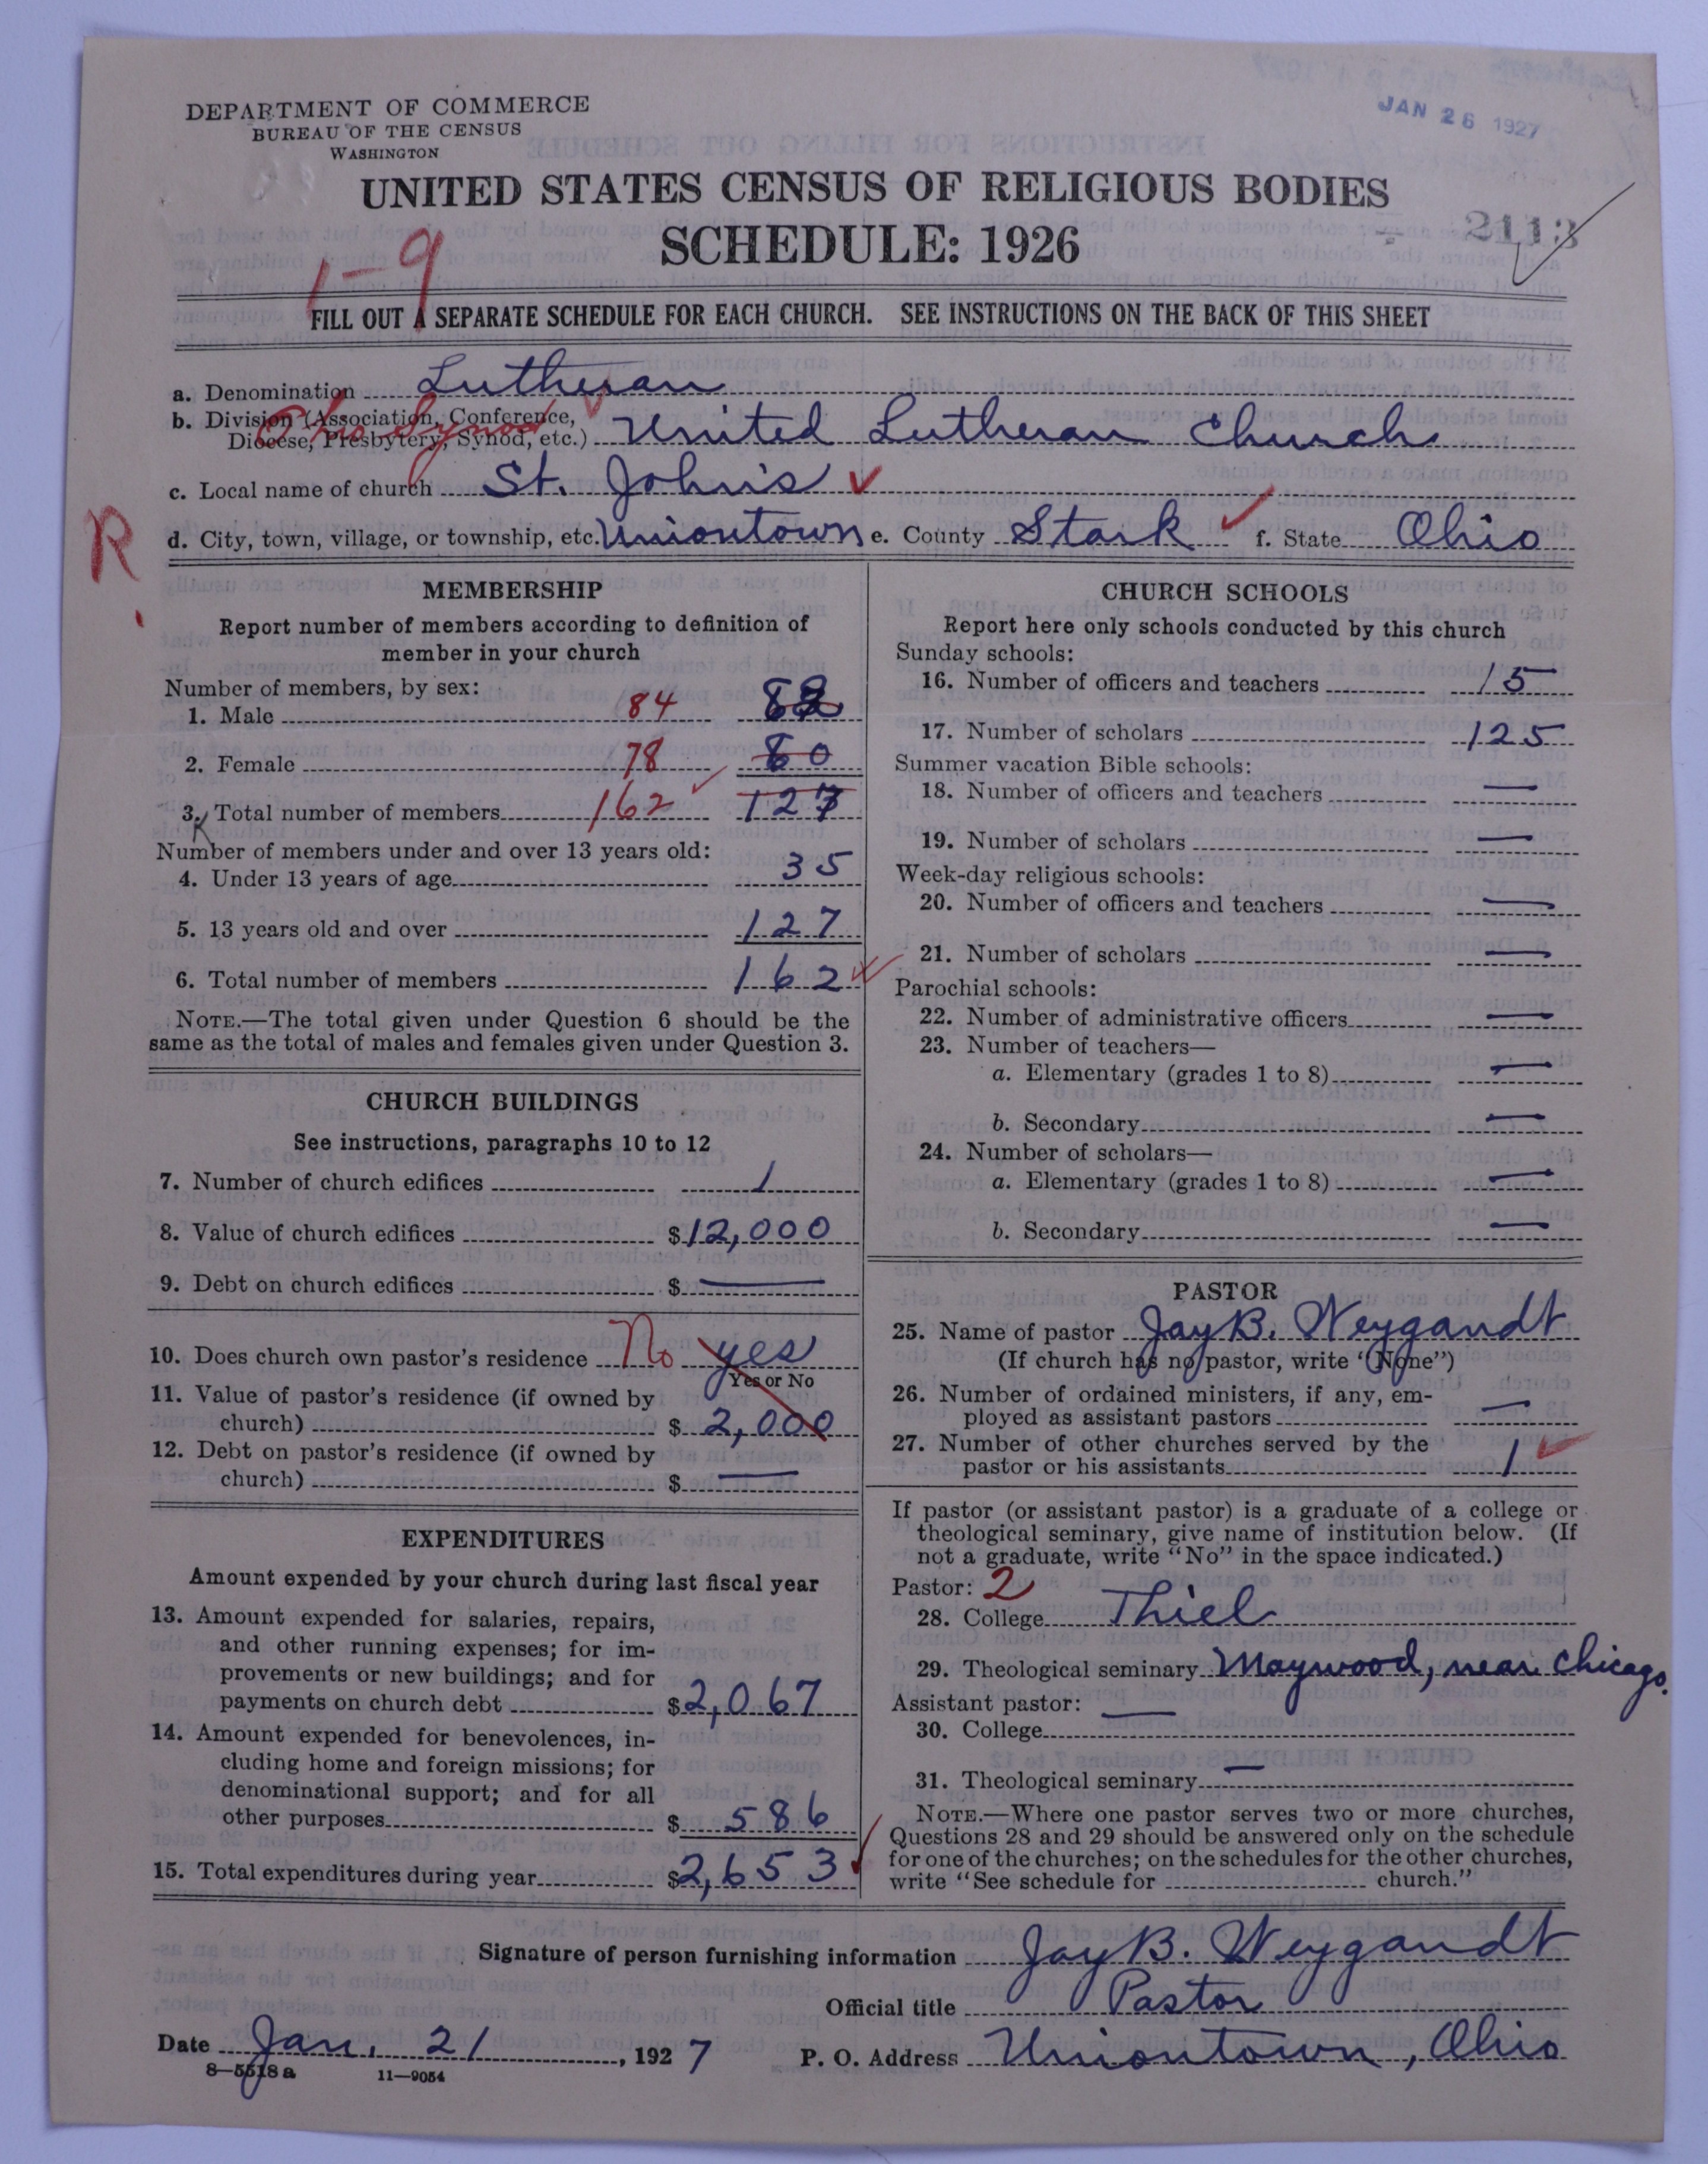 DEPARTMENT OF COMMERCE
BUREAU OF THE CENSUS
WASHINGTON
JAN 26 1927
UNITED STATES CENSUS OF RELIGIOUS BODIES
SCHEDULE: 1926
2113
1-9
FILL OUT A SEPARATE SCHEDULE FOR EACH CHURCH. SEE INSTRUCTIONS ON THE BACK OF THIS SHEET
a. Denomination Lutheran
b. Division (Association, Conference,
Diocese, Presbytery, Synod, etc.) United Lutheran Church
Ohio Synod
c. Local name of church St. John's
d. City, town, village, or township, etc. Uniontown e. County Stark f. State Ohio
R
MEMBERSHIP
Report number of members according to definition of
member in your church
Number of members, by sex:
1. Male 84
2. Female 78 60
3. Total number of members 162 127
Number of members under and over 13 years old:
4. Under 13 years of age 35
5. 13 years old and over 127
6. Total number of members 162
NOTE.—The total given under Question 6 should be the
same as the total of males and females given under Question 3.
CHURCH BUILDINGS
See instructions, paragraphs 10 to 12
7. Number of church edifices 1
8. Value of church edifices $12,000
9. Debt on church edifices $ —
10. Does church own pastor's residence No yes
Yes or No
11. Value of pastor's residence (if owned by
church) $ 2,000
12. Debt on pastor's residence (if owned by
church) $ —
EXPENDITURES
Amount expended by your church during last fiscal year
13. Amount expended for salaries, repairs,
and other running expenses; for im-
provements or new buildings; and for
payments on church debt $2,067
14. Amount expended for benevolences, in-
cluding home and foreign missions; for
denominational support; and for all
other purposes $ 586
15. Total expenditures during year $2,653
CHURCH SCHOOLS
Report here only schools conducted by this church
Sunday schools:
16. Number of officers and teachers 15
17. Number of scholars 125
Summer vacation Bible schools:
18. Number of officers and teachers —
19. Number of scholars —
Week-day religious schools:
20. Number of officers and teachers —
21. Number of scholars —
Parochial schools:
22. Number of administrative officers —
23. Number of teachers—
a. Elementary (grades 1 to 8) —
b. Secondary —
24. Number of scholars—
a. Elementary (grades 1 to 8) —
b. Secondary —
PASTOR
25. Name of pastor Jay B. Weygandt
(If church has no pastor, write "None")
26. Number of ordained ministers, if any, em-
ployed as assistant pastors —
27. Number of other churches served by the
pastor or his assistants 1
If pastor (or assistant pastor) is a graduate of a college or
theological seminary, give name of institution below. (If
not a graduate, write "No" in the space indicated.)
Pastor: 2
28. College Thiel
29. Theological seminary Maywood, near Chicago.
Assistant pastor: —
30. College
31. Theological seminary —
NOTE.—Where one pastor serves two or more churches,
Questions 28 and 29 should be answered only on the schedule
for one of the churches; on the schedules for the other churches,
write "See schedule for church."
Signature of person furnishing information Jay B. Weygandt
Official title Pastor
Date Jan. 21, 1927 P. O. Address Uniontown, Ohio
8—5518 a 11—9054